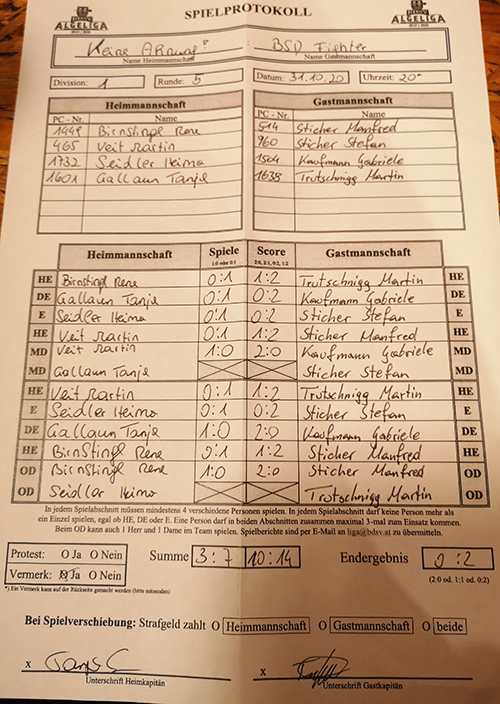 SPIELPROTOKOLL
ALGELIGA ALGELIGA
Keine Ahnung? : BSD Fighter
Name Heimmannschaft Name Gastmannschaft
Division: 1 Runde: 5 Datum: 31.10.20 Uhrzeit: 20
Heimmannschaft Gastmannschaft
PC - Nr. Name PC - Nr. Name
1449 Birnstingl Rene 514 Sticher Manfred
465 Veit Martin 960 Sticher Stefan
1732 Seidler Heimo 1504 Kaufmann Gabriele
1601 Gallaun Tanja 1638 Trutschnigg Martin
Heimmannschaft Spiele Score Gastmannschaft
1:0 oder 0:1 2:0, 2:1, 0:2, 1:2
HE Birnstingl Rene 0:1 1:2 Trutschnigg Martin HE
DE Gallaun Tanja 0:1 0:2 Kaufmann Gabriele DE
E Seidler Heimo 0:1 0:2 Sticher Stefan E
HE Veit Martin 0:1 1:2 Sticher Manfred HE
MD Veit Martin 1:0 2:0 Kaufmann Gabriele MD
MD Gallaun Tanja Sticher Stefan MD
HE Veit Martin 0:1 1:2 Trutschnigg Martin HE
E Seidler Heimo 0:1 0:2 Sticher Stefan E
DE Gallaun Tanja 1:0 2:0 Kaufmann Gabriele DE
HE Birnstingl Rene 0:1 1:2 Sticher Manfred HE
OD Birnstingl Rene 1:0 2:0 Sticher Manfred OD
OD Seidl Heimo Trutschnigg Martin OD
In jedem Spielabschnitt müssen mindestens 4 verschiedene Personen spielen. In jedem Spielabschnitt darf keine Person mehr als
ein Einzel spielen, egal ob HE, DE oder E. Eine Person darf in beiden Abschnitten zusammen maximal 3-mal zum Einsatz kommen.
Beim OD kann auch 1 Herr und 1 Dame im Team spielen. Spielberichte sind per E-Mail an liga@bdsv.at zu übermitteln.
Protest: O Ja O Nein Summe 3:7 10:14 Endergebnis 0:2
Vermerk: O Ja O Nein (2:0 od. 1:1 od. 0:2)
*) Ein Vermerk kann auf der Rückseite gemacht werden (bitte mitsenden)
Bei Spielverschiebung: Strafgeld zahlt O Heimmannschaft O Gastmannschaft O beide
x x
Unterschrift Heimkapitän Unterschrift Gastkapitän